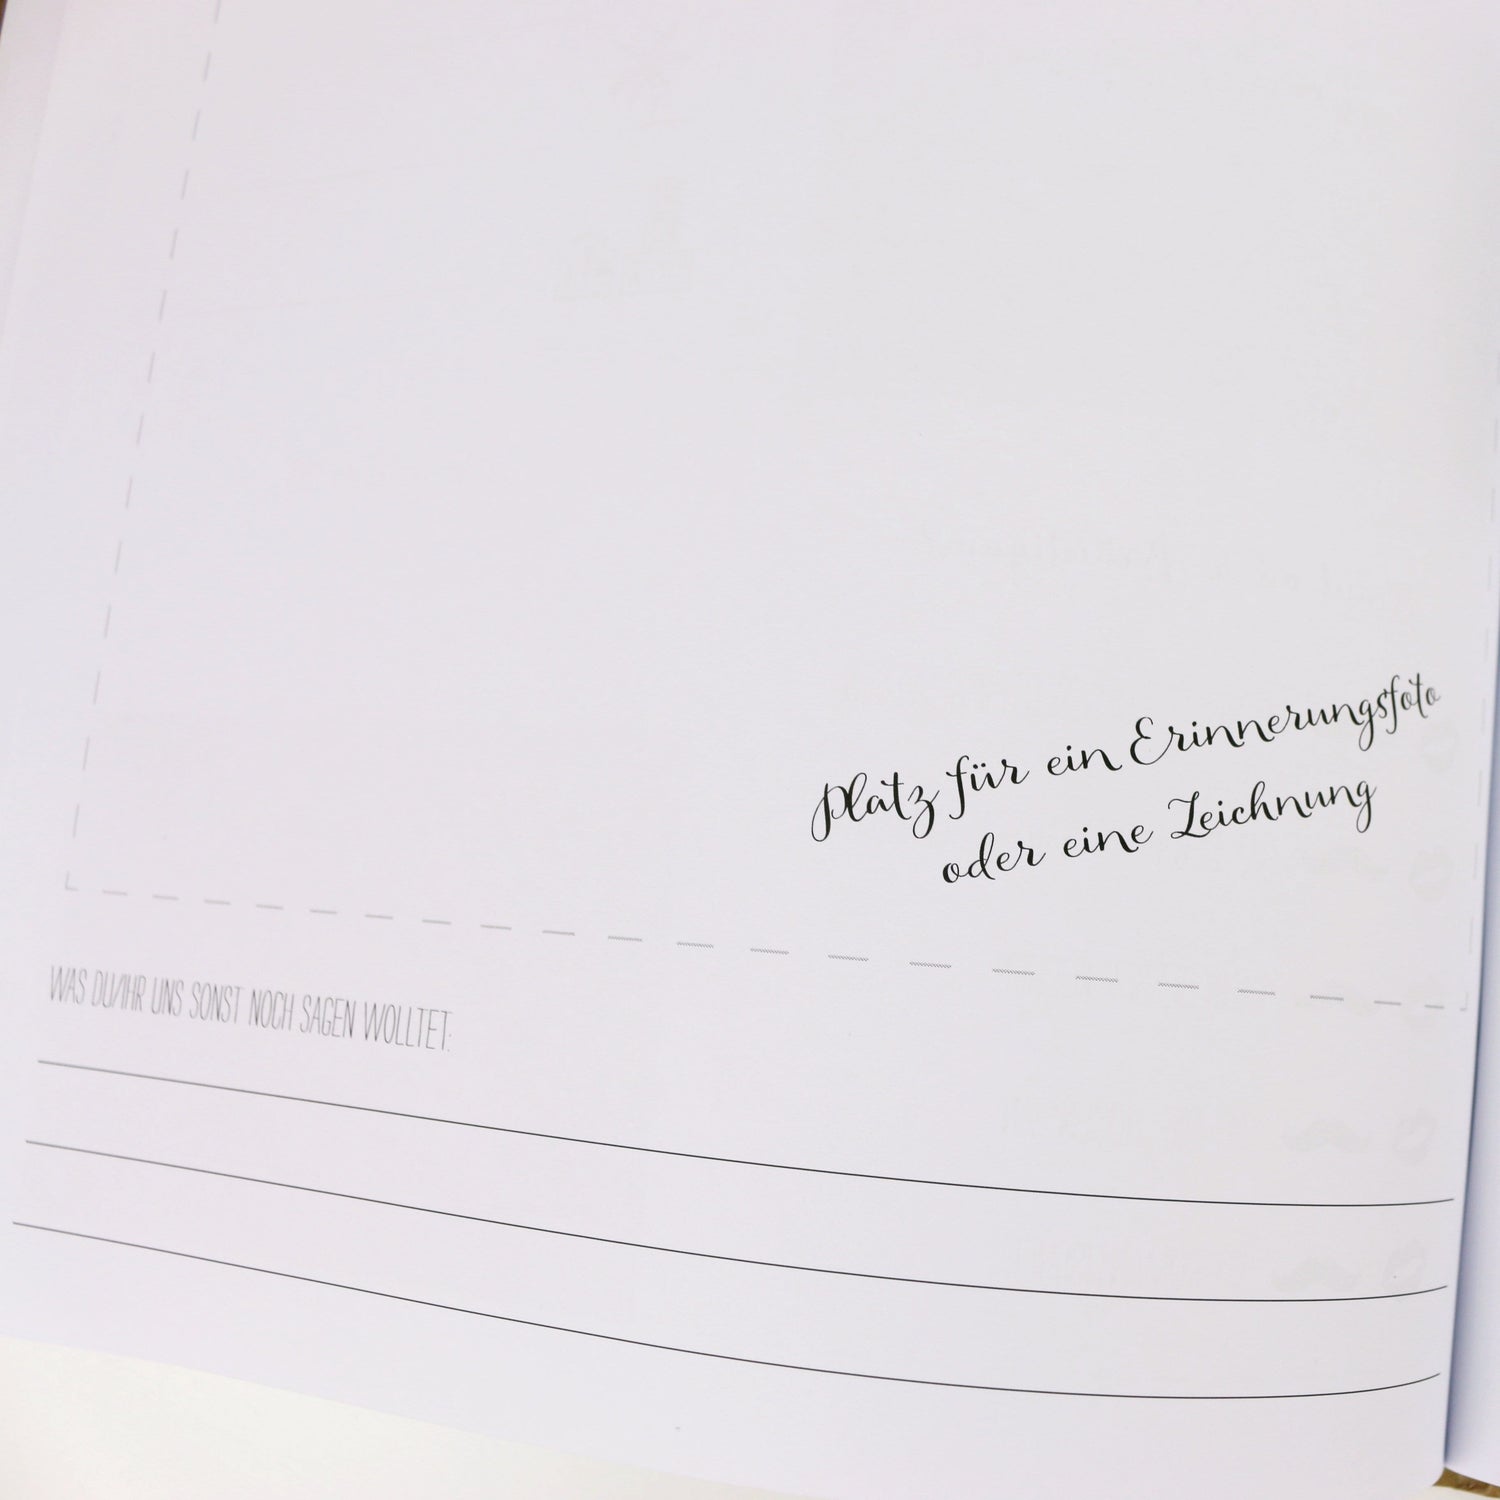 Platz für ein Erinnerungsfoto
oder eine Zeichnung
WAS DU/IHR UNS SONST NOCH SAGEN WOLLTET: